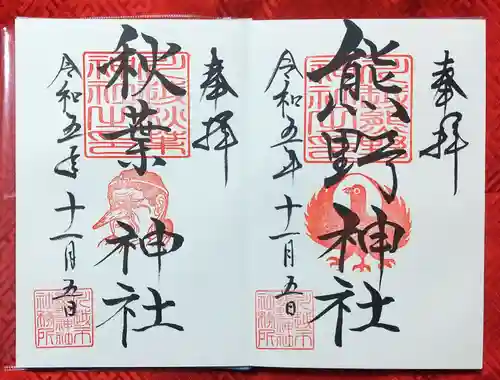 奉拝
熊野神社
令和五年十一月五日
奉拝
秋葉神社
令和五年十一月五日